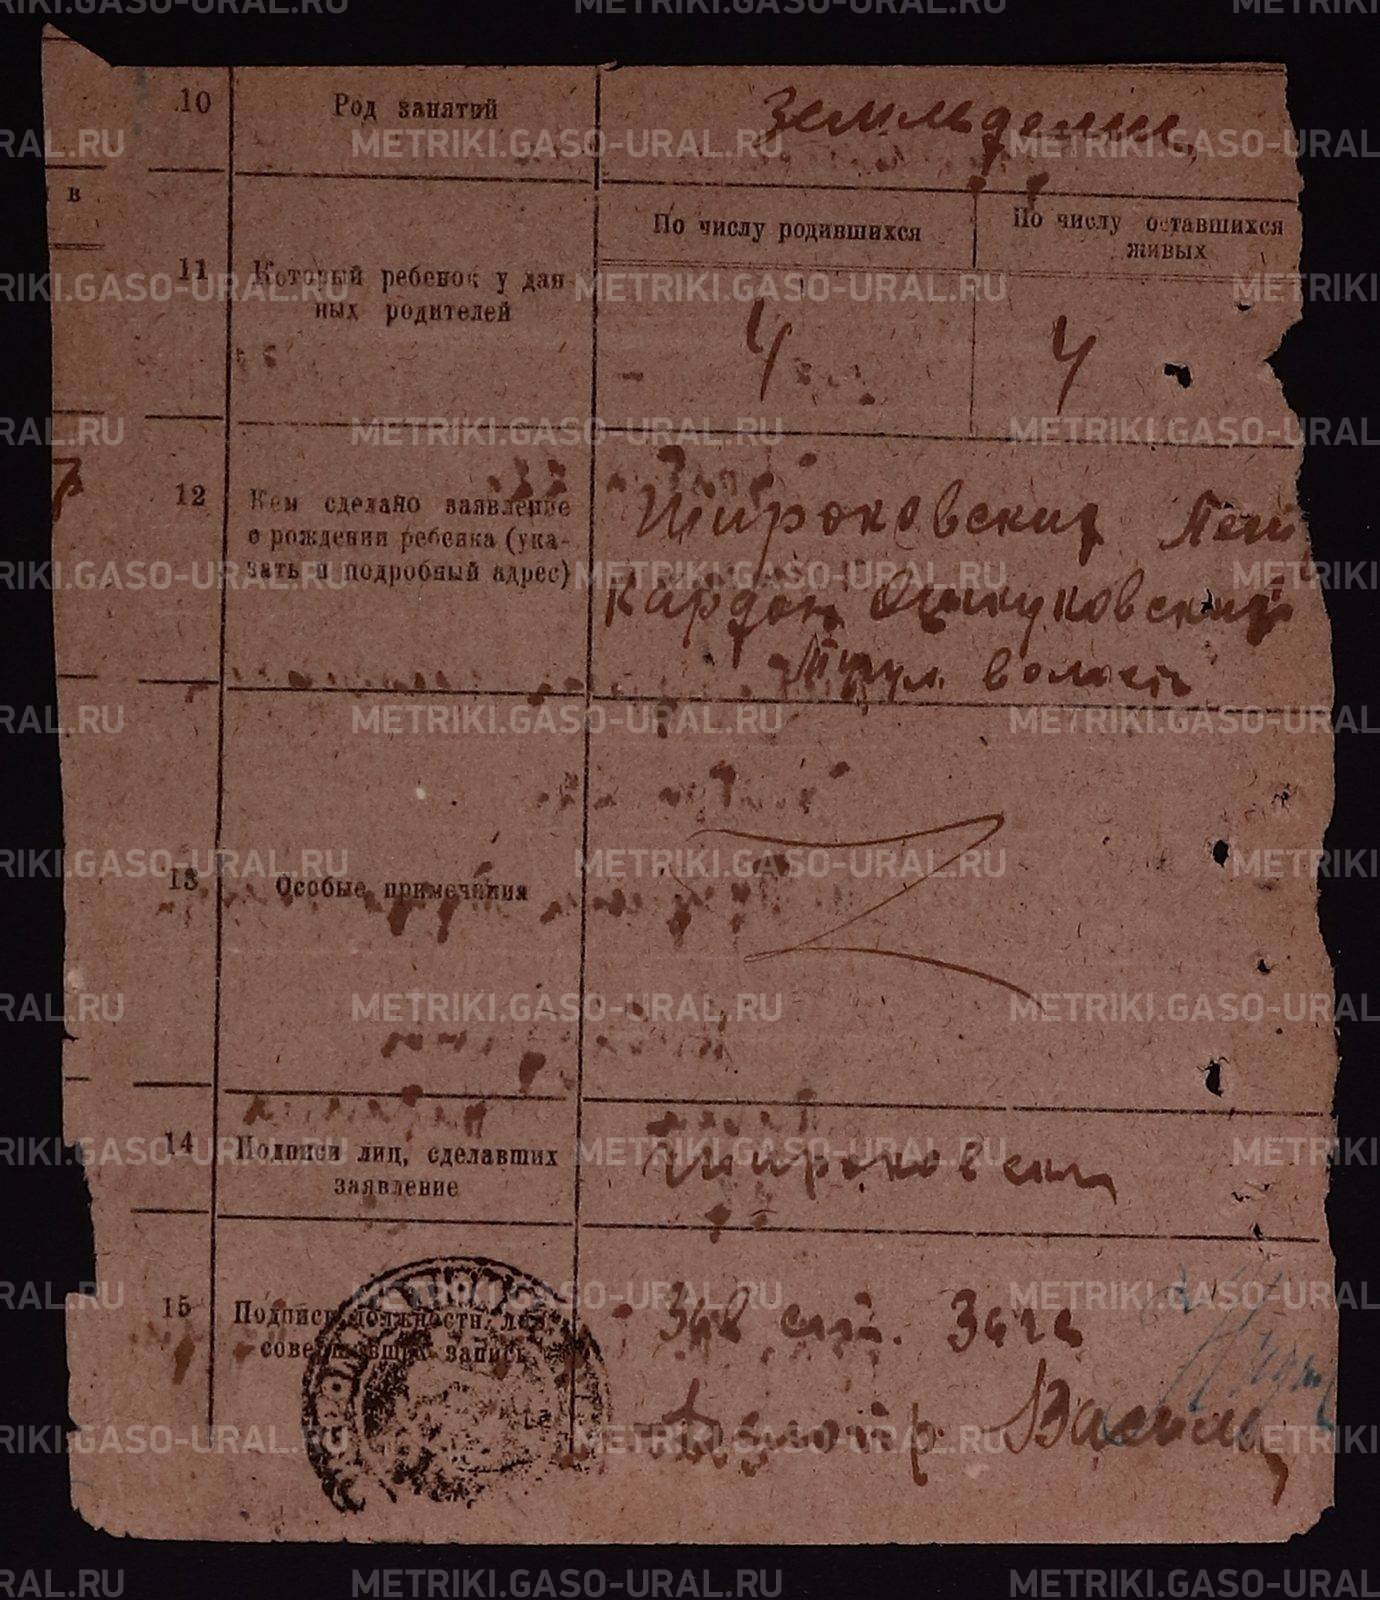 10 Род занятий Земльделие,
в
По числу родившихся
По числу оставшихся
живых
11 Который ребенок у дан
ных родителей
4 4
12 Кем сделано заявление
о рождении ребенка (ука-
зать и подробный адрес)
Широковский
Кардон Ошкуковский
волость
13 Особые примечания
14 Подписи лиц, сделавших
заявление
Широковски
15 Подписи должностн. лиц,
совершивших запись
Зав Зага
METRIKI.GASO-URAL.RU